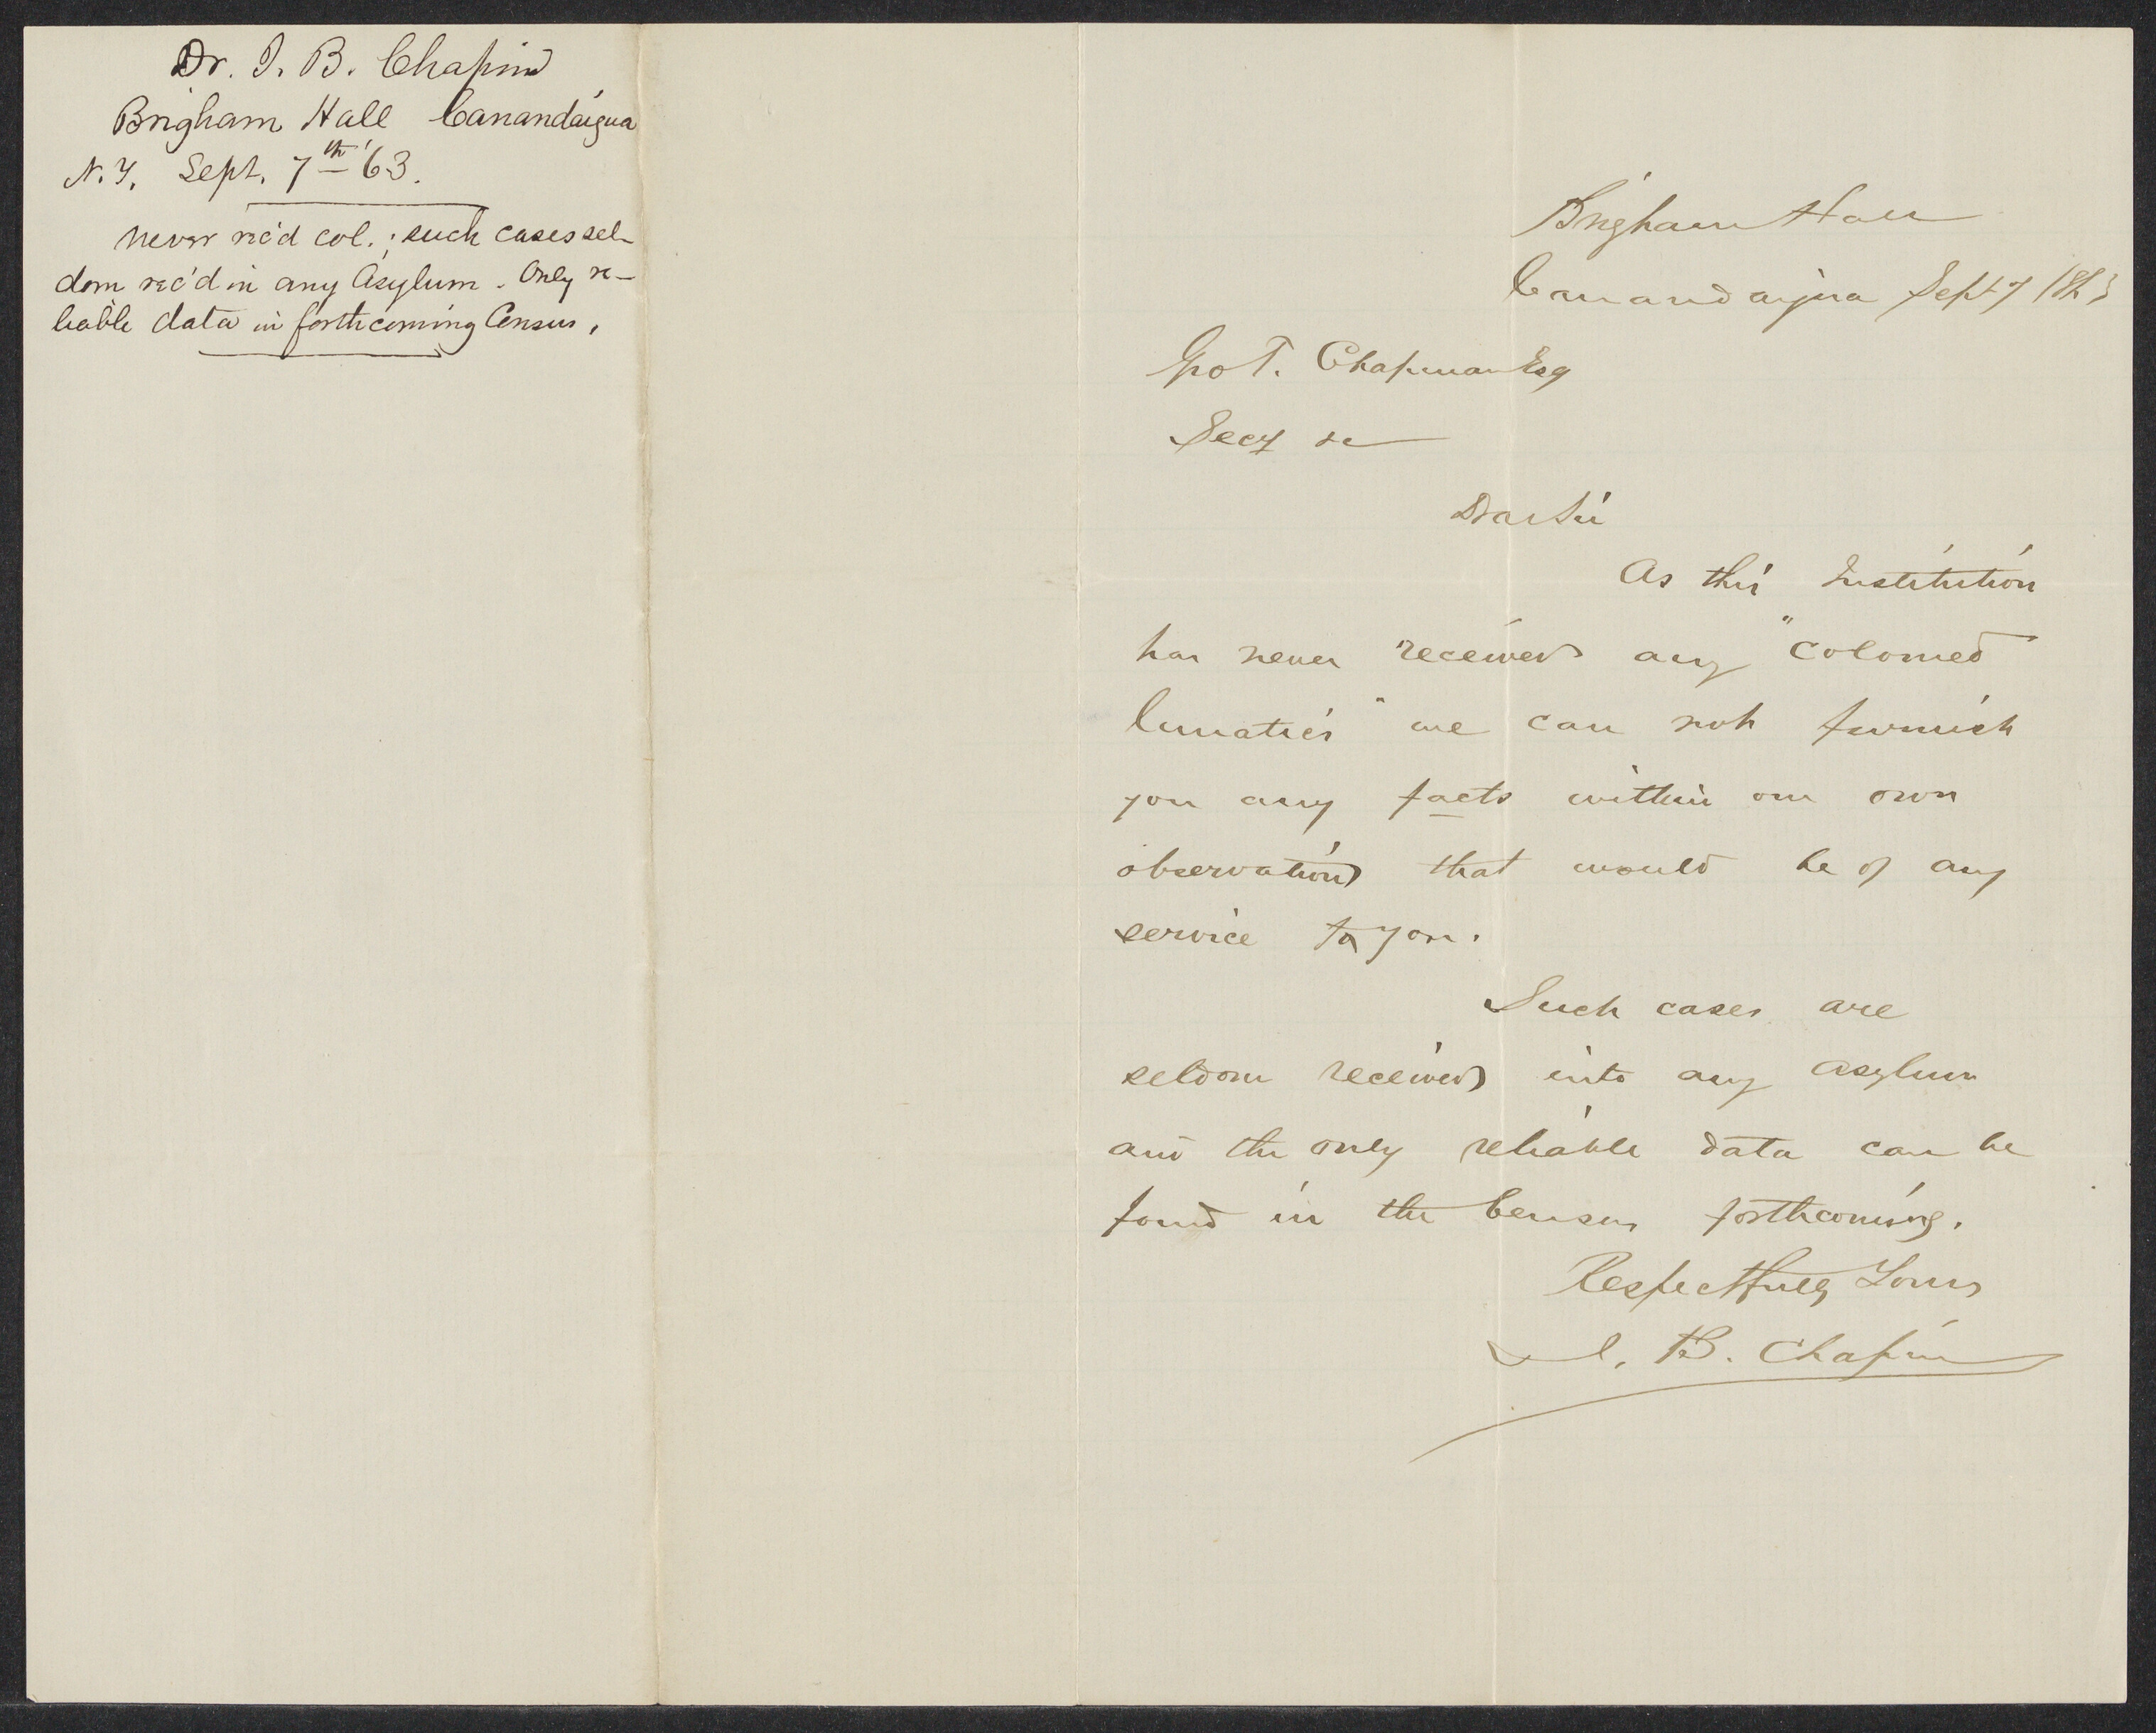 Dr. J. B. Chapin
Brigham Hall Canandaigua
N.Y. Sept. 7th '63.
Never rec'd col.; such cases sel-
dom rec'd in any Asylum. Only re-
liable data in forthcoming Census.
Brigham Hall
Canandaigua Sept 7 1863
Geo T. Chapman Esq
Secy &c
Dear Sir
As this Institution
has never received any "colored
lunatics" we can not furnish
you any facts within our own
observation that would be of any
service to you.
Such cases are
seldom received into any asylum
and the only reliable data can be
found in the Census forthcoming.
Respectfully Yours
J. B. Chapin